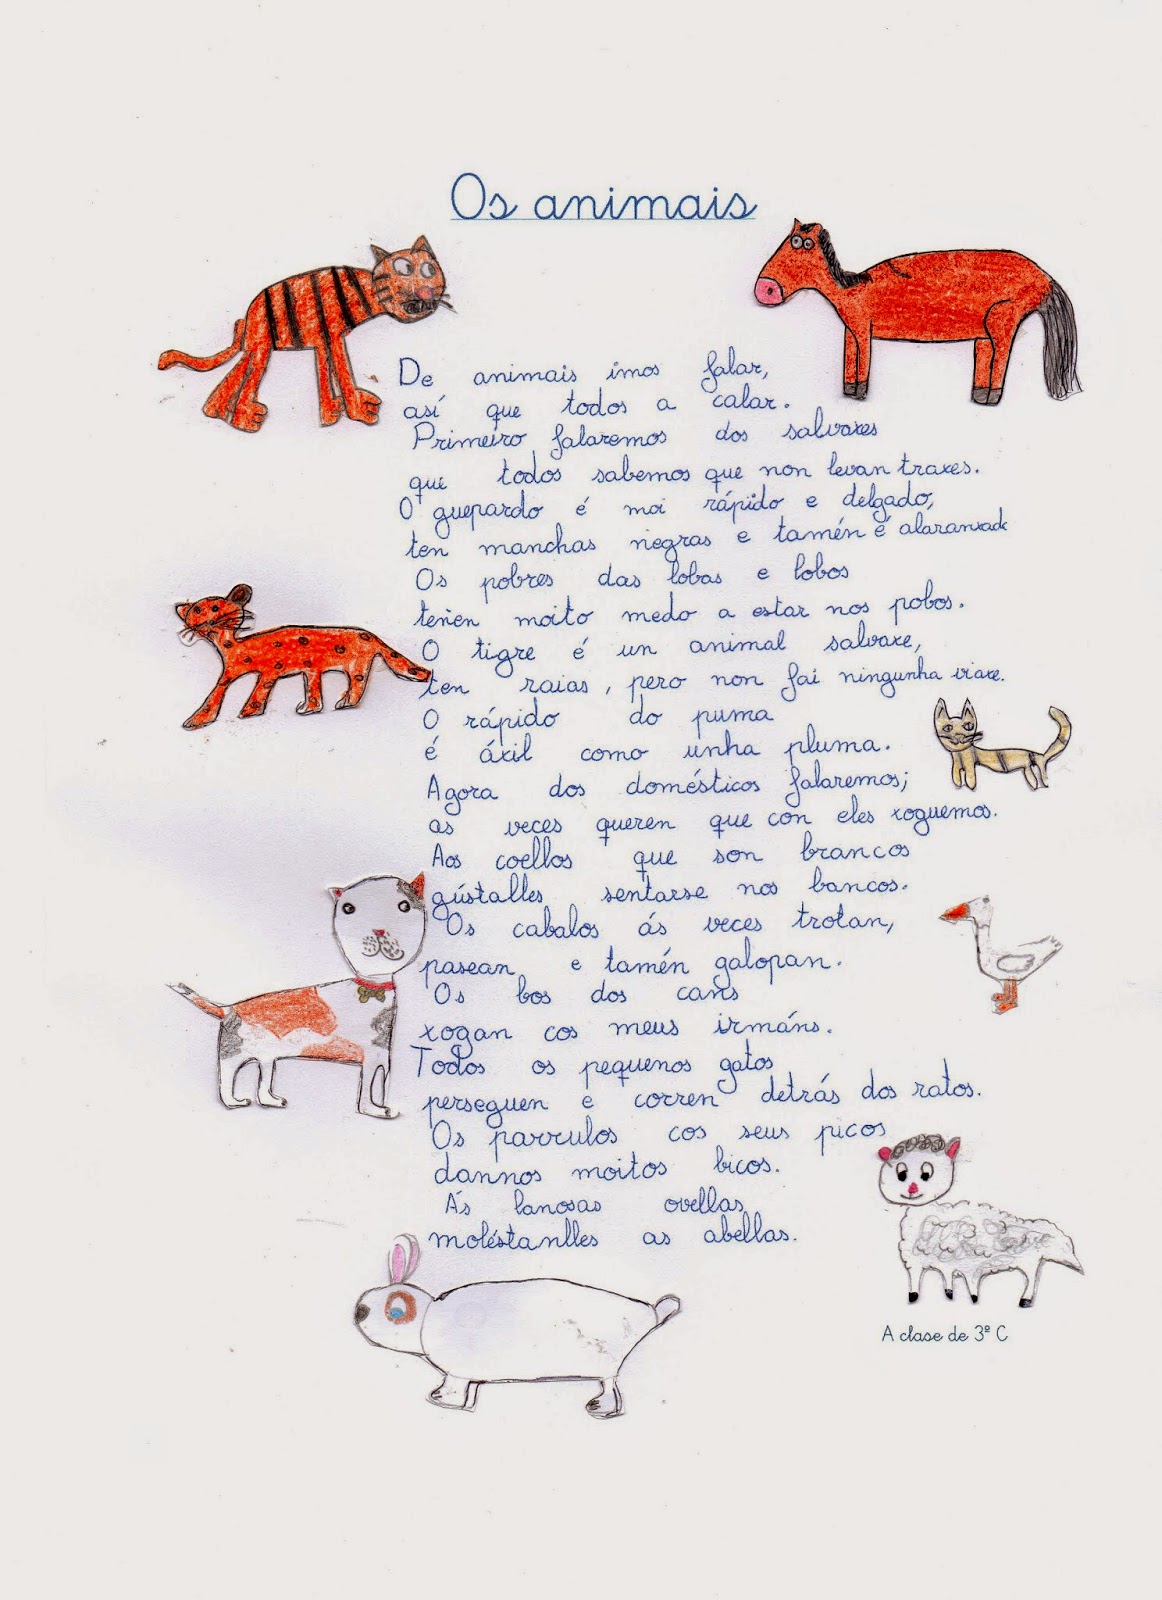 Os animais
De animais imos falar,
así que todos a calar.
Primeiro falaremos dos salvaxes
que todos sabemos que non levan traxes.
O guepardo é moi rápido e delgado,
ten manchas negras e tamén é alaranxado
Os pobres das lobas e lobos
teñen moito medo a estar nos pobos.
O tigre é un animal salvaxe,
ten raias, pero non fai ningunha viaxe.
O rápido do puma
é áxil como unha pluma.
Agora dos domésticos falaremos;
as veces queren que con eles xoguemos.
Aos coellos que son brancos
gústalles sentarse nos bancos.
Os cabalos ás veces trotan,
pasean e tamén galopan.
Os bos dos cans
xogan cos meus irmáns.
Todos os pequenos gatos
perseguen e corren detrás dos ratos.
Os parrulos cos seus picos
dannos moitos bicos.
Ás lanosas ovellas
moléstanlles as abellas.
A clase de 3º C